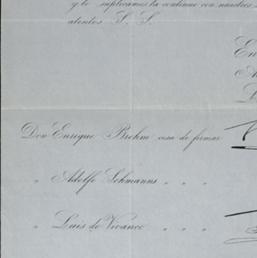 y le suplicamos la continue con nuestros
atentos S. S.
En
A
L
Don Enrique Brehm cesa de firmar
" Adolfo Lehmanns " " "
" Luis de Vivanco " " "